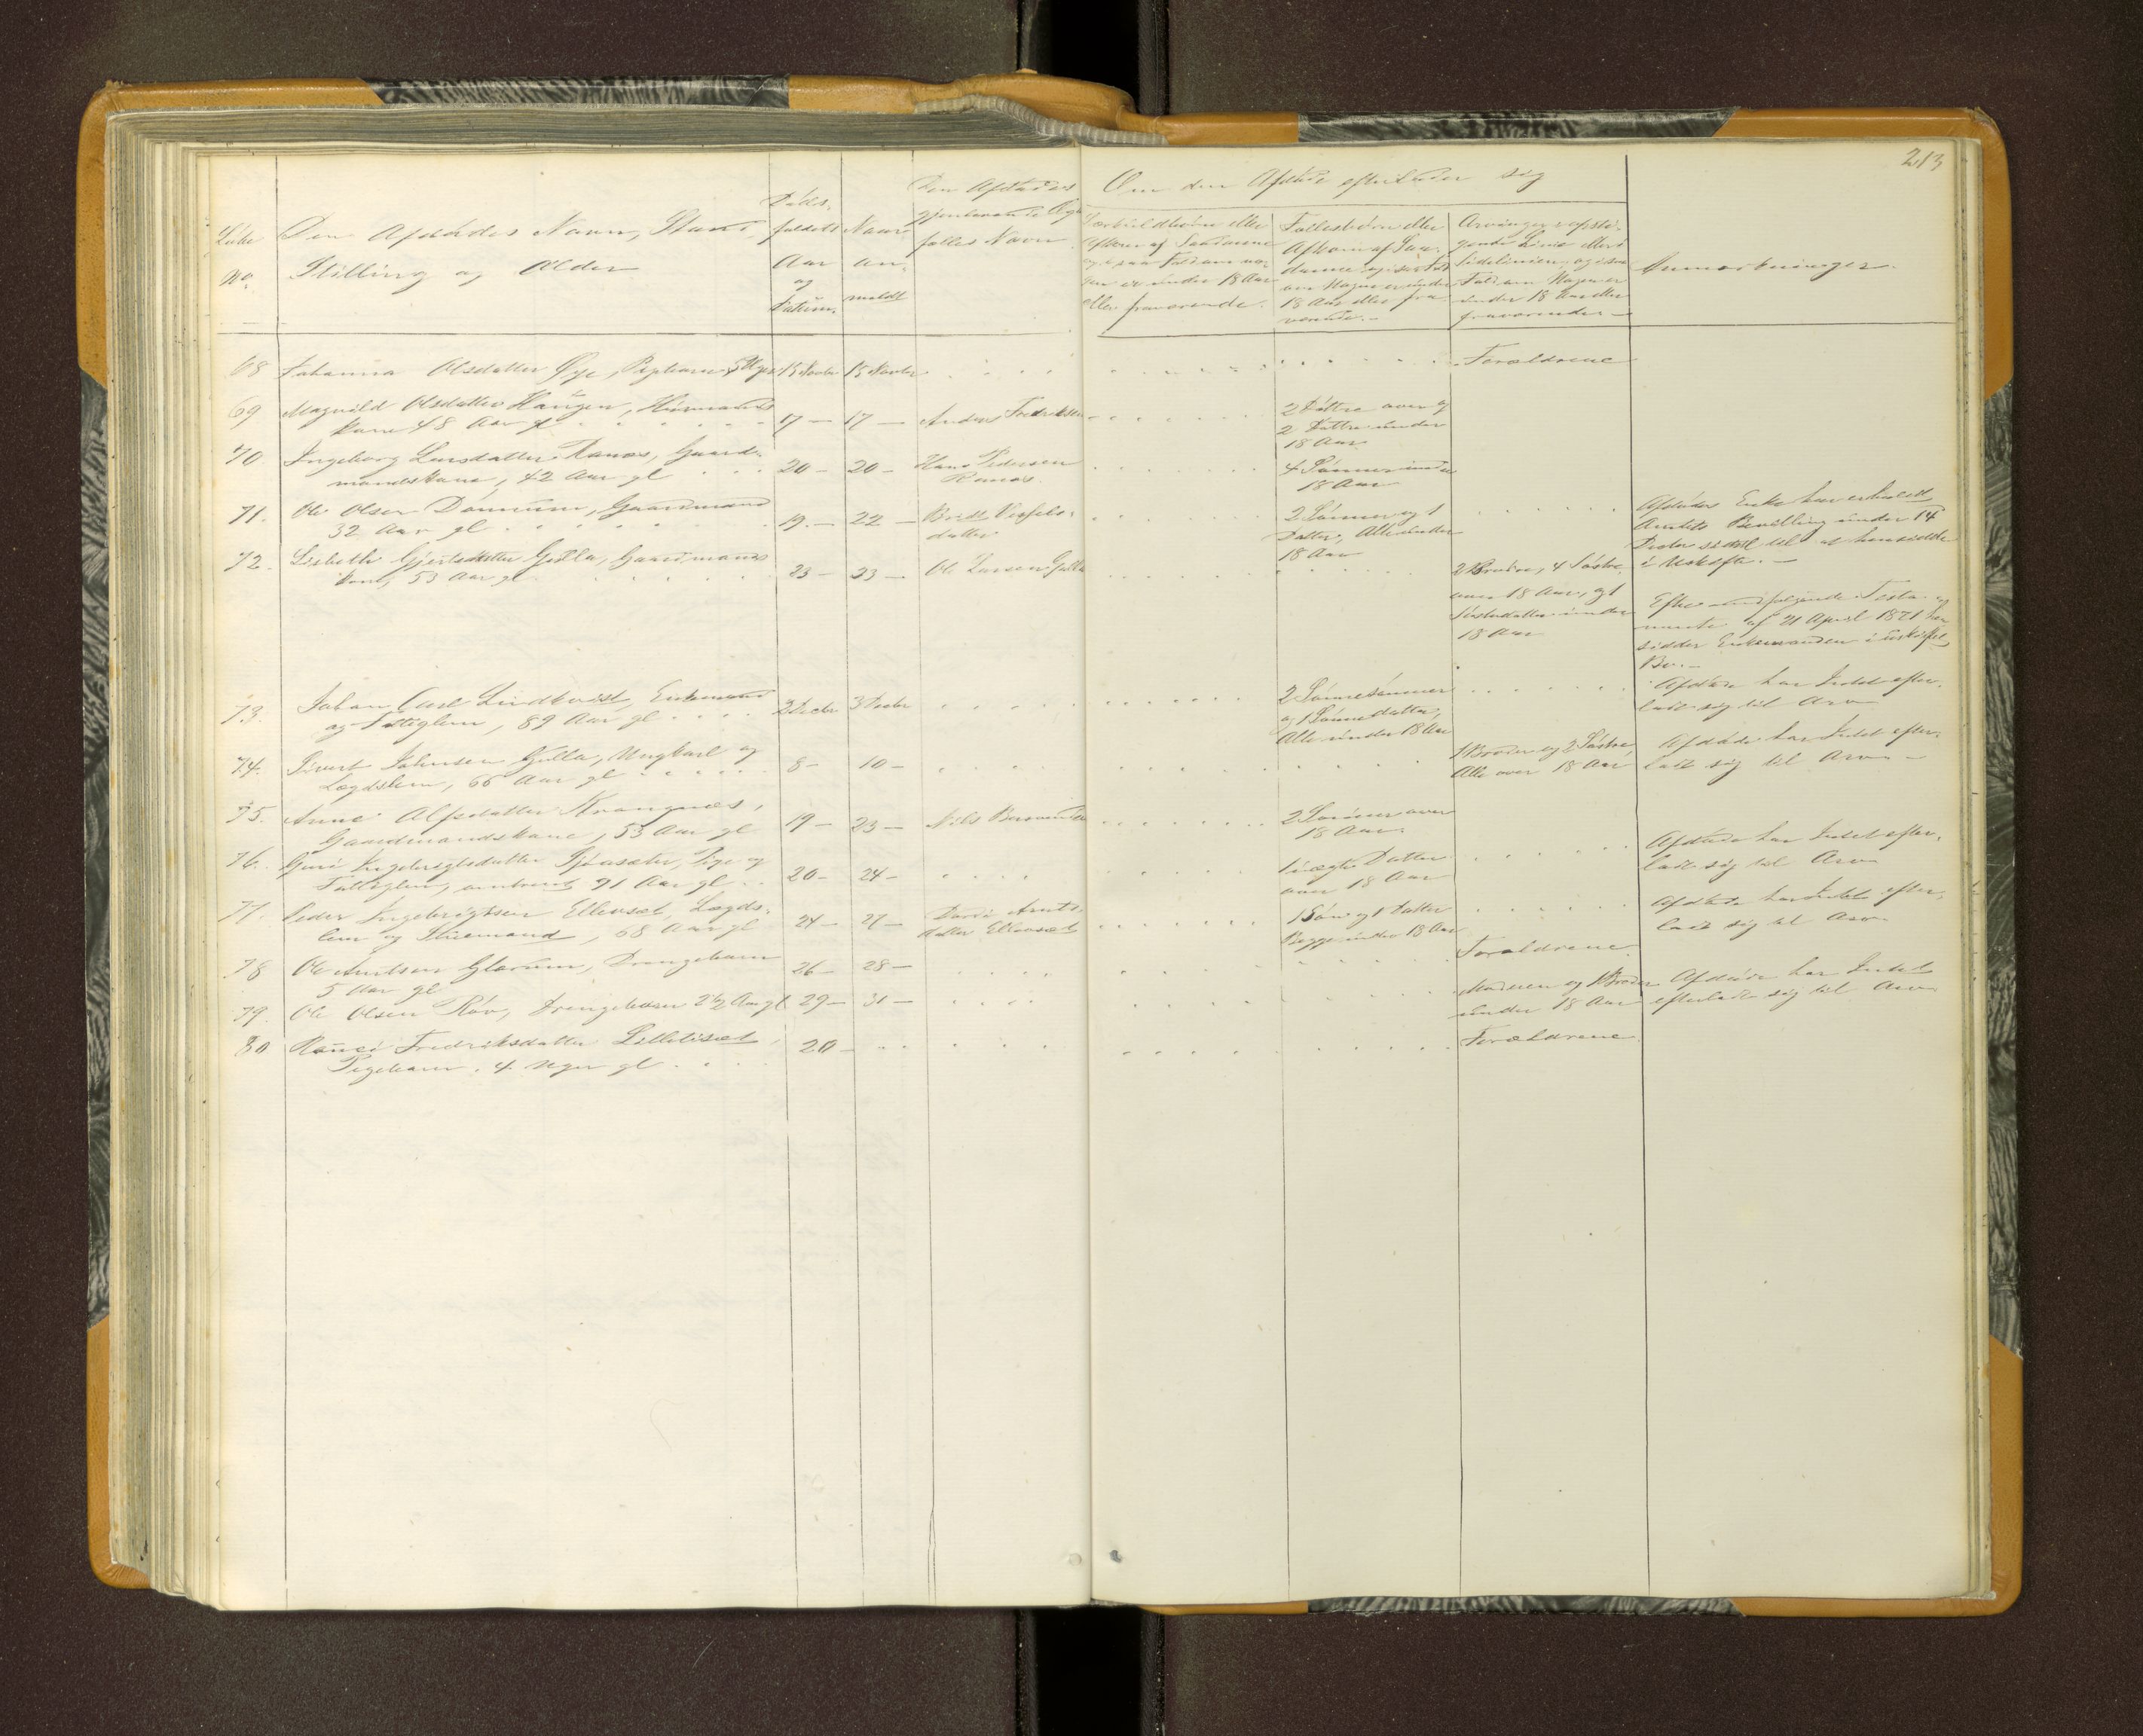 213
Løbe No.
Den Afdødes Navn, Stand,
Stilling og Alder
Døds-
faldets
Aar
og
Datum.
Naar
an-
meldt
Den Afdødes
gjenlevende Ægte-
fælles Navn
Om den Afdøde efterlader sig
Særkuldbørn eller
Afkom af Saadanne
under 18 Aar
eller fraværende.
Fællesbørn eller
Afkom af Saa-
danne
18 Aar eller fra-
værende.-
Arvinger i opsti-
gende Linie eller i
Sidelinien
Fald om Nogen er
under 18 Aar eller
fraværender -
Anmærkninger.
68 Johanna Olsdatter Øye, Pigebarn 5 Uger 15 Novbr 15 Novbr Forældrene
69 Magnild Olsdatter Haugen, Huusmands
kone 48 Aar gl 17 - 17 - Anders Fredriksen
2 Døttre over og
2 Døttre under
18 Aar
70 Ingeborg Larsdatter Ranæs, Gaard-
mandskone, 42 Aar gl 20 - 20 - Hans Pedersen
Ranæs.
4 Sønner under
18 Aar
71. Ole Olsen Dønnum, Gaardmand
32 Aar gl 19. - 22 -
datter
2 Sønner og 1
Datter, Alle under
18 Aar
Afdødes Enke har erholdt
Amtets Bevilling under 14
Decbr sidstl til at hensidde
i Uskifte. -
72. Lisbeth Gjertsdatter Gulla, Gaardmands
kone, 53 Aar gl 23 - 23 - Ole Larsen Gulla
2 Brødre, 4 Søstre
over 18 Aar, og 1
Søsterdatter under
18 Aar
Efter medfølgende Testa-
mente af 21 April 1871
sidder Enkemanden i uskiftet
Bo. -
73. Johan Carl Lindkvist, Enkemand
og Fattiglem, 89 Aar gl 2 Decbr 3 Decbr
2 Sønnesønner
og 1 Sønnedatter,
Alle under 18 Aar
Afdøde har Intet efter-
ladt sig til Arv
74. Sivert Johnsen Gulla, Ungkarl og
Lægdslem, 66 Aar gl 8 - 10 -
1 Broder og 2 Søstre,
Alle over 18 Aar
Afdøde har Intet efter-
ladt sig til Arv -
75. Anne Alfsdatter Kvangnæs,
Gaardmandskone, 53 Aar gl 19 - 23 -
2 Sønner over
18 Aar.
76. Guri Ingebrigtsdatter Pige og
Fattiglem, omtrent 91 Aar gl 20 - 24 -
1 uægte Datter
over 18 Aar
Afdøde har Intet efter-
ladt sig til Arv
77. Peder Ingebrigtsen Ellevset, Lægds-
lem og Huusmand, 68 Aar gl 24 - 27 -
datter Ellevset
1 Søn og 1 Datter
Begge under 18 Aar
Afdøde har Intet efter-
ladt sig til Arv
78 Ole Arntsen Glærum, Drengebarn
5 Aar gl 26 - 28 - Forældrene
79. Ole Olsen Røv, Drengebarn 2½ Aar gl 29 - 31 -
Moderen og 1 Broder
under 18 Aar
Afdøde har Intet
efterladt sig til Arv
80 Fredriksdatter
Pigebarn, 4 Uger gl 20 - Forældrene